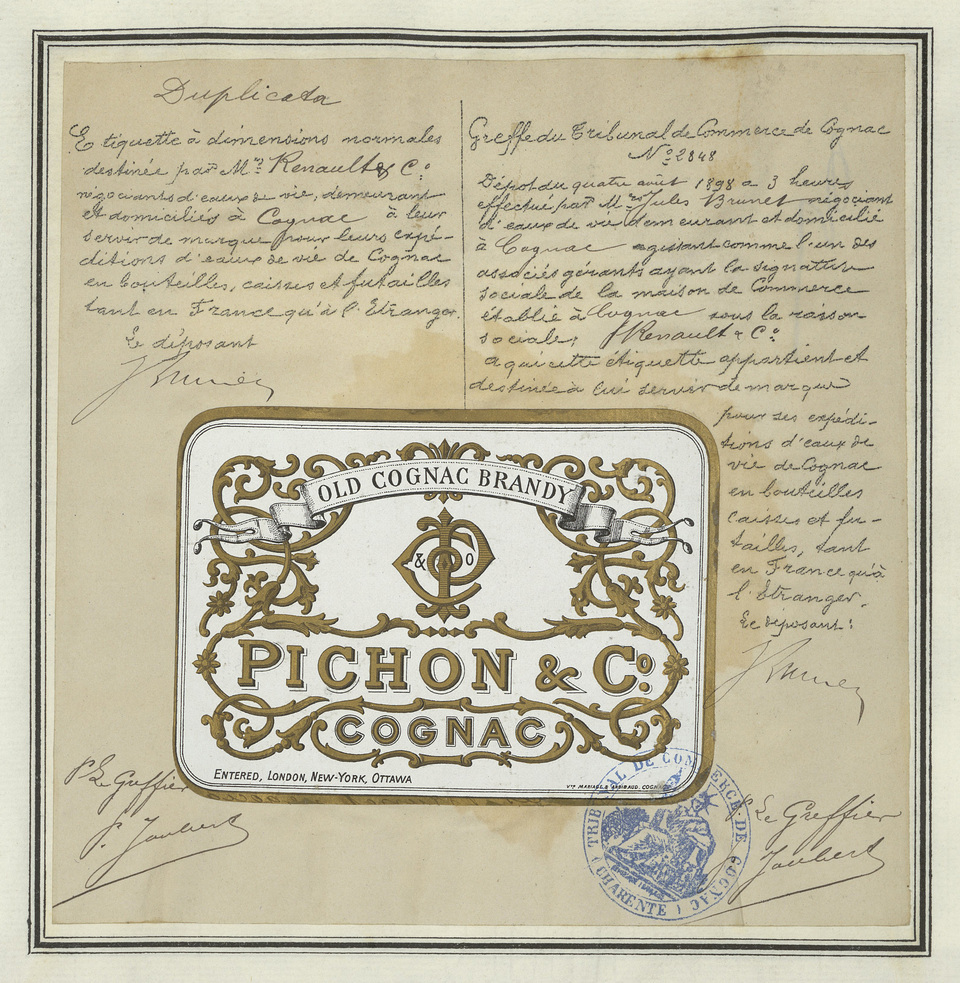 Duplicata
Etiquette à dimensions normales
destinée par Mrs Renault & Co
négociants d'eaux de vie, demeurant
et domiciliés à Cognac à leur
servir de marque pour leurs expé-
ditions d'eaux de vie de Cognac
en bouteilles, caisses et futailles
tant en France qu'à l'Etranger.
Le déposant
Greffe du Tribunal de Commerce de Cognac
No 2848
Dépôt du quatre août 1898 à 3 heures
effectué par Mr Jules Brunet négociant
d'eaux de vie demeurant et domicilié
à Cognac agissant comme l'un des
associés gérants ayant la signature
sociale de la maison de Commerce
établie à Cognac sous la raison
sociale; J Renault & Co
à qui cette étiquette appartient et
destinée à lui servir de marque
pour ses expédi-
tions d'eaux de
vie de Cognac
en bouteilles
caisses et fu-
tailles, tant
en France qu'à
l'Etranger.
Le déposant:
OLD COGNAC BRANDY
& Co
PICHON & Co
COGNAC
ENTERED, LONDON, NEW-YORK, OTTAWA
Pr Le Greffier
P. Joubert
TRIBUNAL DE COMMERCE DE COGNAC
(CHARENTE)
Pr Le Greffier
Joubert